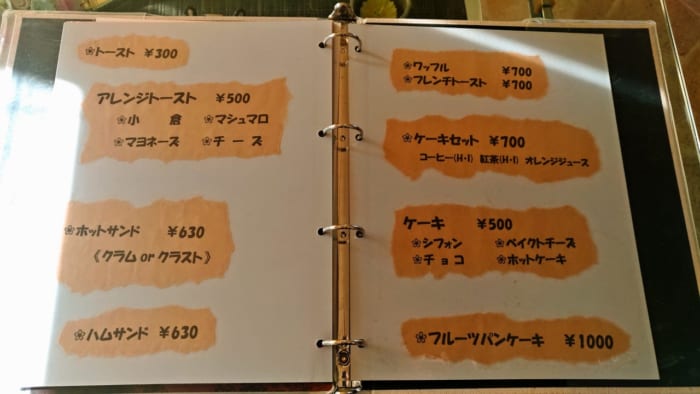 ❀トースト ¥300
アレンジトースト ¥500
❀小倉 ❀マシュマロ
❀マヨネーズ ❀チーズ
❀ホットサンド ¥630
《クラム or クラスト》
❀ハムサンド ¥630
❀ワッフル ¥700
❀フレンチトースト ¥700
❀ケーキセット ¥700
コーヒー(H・I) 紅茶(H・I) オレンジジュース
ケーキ ¥500
❀シフォン ❀ベイクトチーズ
❀チョコ ❀ホットケーキ
❀フルーツパンケーキ ¥1000